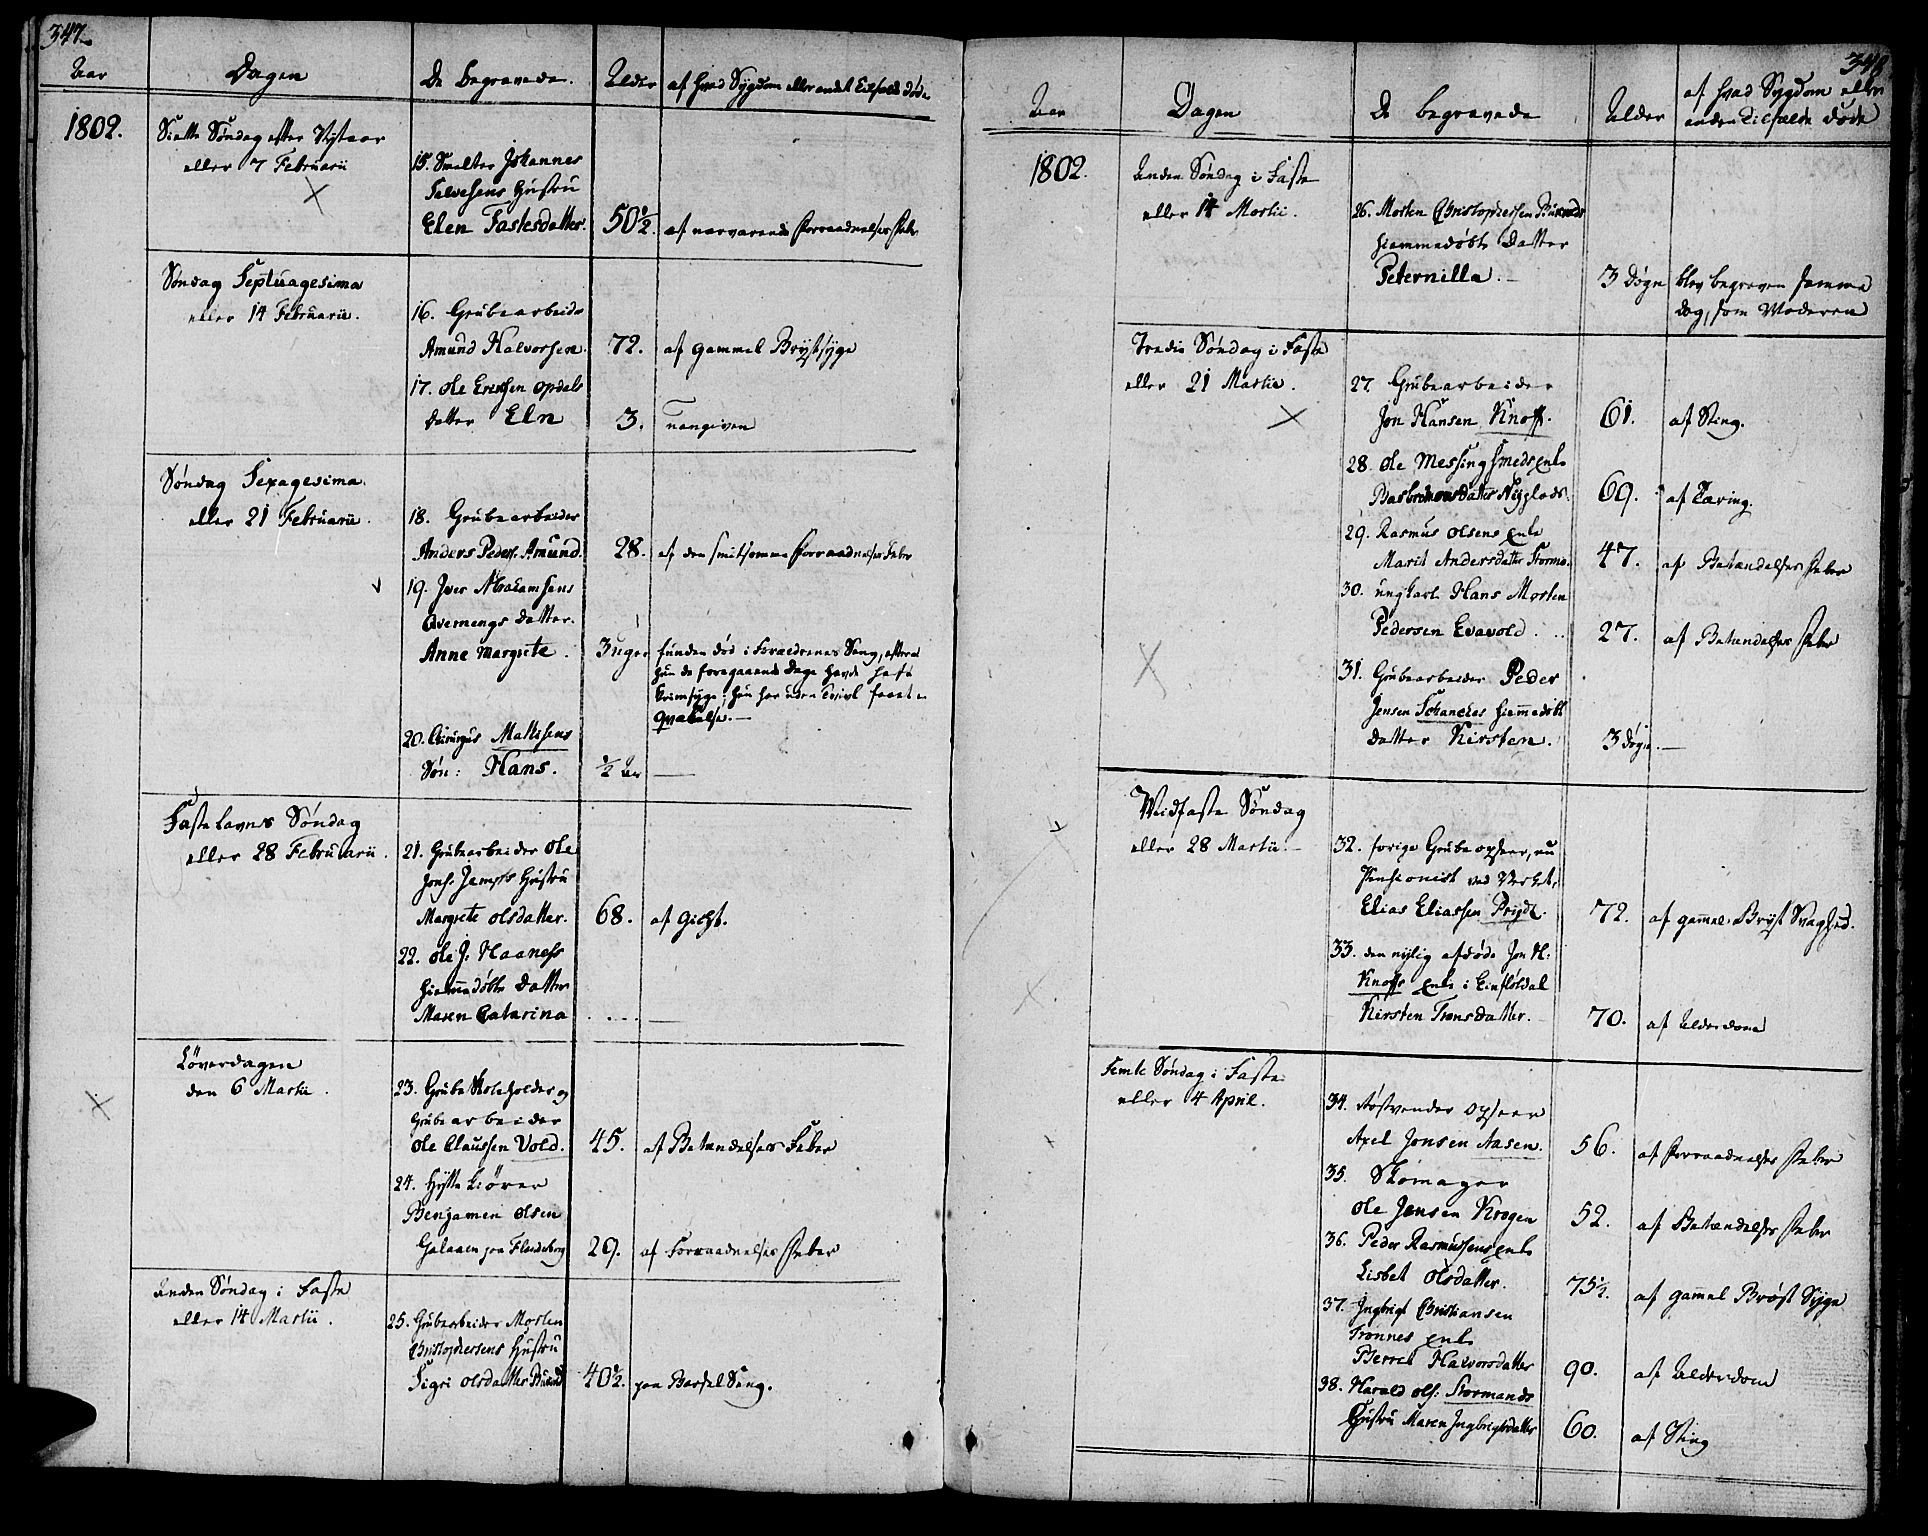 347.
Aar Dagen De begravede. Alder af hvad Sygdom eller andet Tilfælde døde
1802. Siette Søndag efter Nytaar
eller 7 Februarii
15. Smelter Johannes
Hustru
Elen Fastesdatter. 50½. af nærværende Forraadnelses Feber
Søndag Septuagesima
eller 14 Februarii.
16. Grubearbeider
Amund Halvorsen. 72. af gammel Brystsyge
17. Ole Ericksen Opdals
datter Eln 3. uangiven
Søndag Sexagesima.
eller 21 Februarii.
18. Grubearbeider
Anders Peders. Amund. 28. af den smitsomme Forraadnelses Feber
19. Iver Abrahamsens
Qvernengs datter.
Anne Margrete. 3 uger funden død i Forældrenes Seng, efterat
hun de foregaaende Dage havde haft
Krimsyge; hun har uden Tvivl faaet en
Qvælelse.—
20. Chirurgus Mathisens
Søn: Hans. ½ Aar —
Fastelavns Søndag
eller 28 Februarii.
21. Grubearbeider Ole
Jons. Jemps Hustru
Margrete Olsdatter. 68. af Gicht.
22. Ole J. Haaness
hiemmedøbte Datter
Maren Catarina . . . . —
Løverdagen
den 6 Martii.
23. Grube Stoleholder og
Grubearbeider
Ole Claussen Vold. 45. af Betændelses Feber
24. Hytte Kiører
Benjamen Olsen
Galaaen paa Flendeborg 29. af Forraadnelses Feber
Anden Søndag i Faste
eller 14 Martii.
25. Grubearbeider Morten
Christophersens Hustru
Sigri Olsdatter 40½. paa Barsel Seng.
348
Aar Dagen De begravede Alder af hvad Sygdom eller
anden Tilfælde døde
1802. Anden Søndag i Faste
eller 14 Martii.
26. Morten Christophersen
hiemmedøbte Datter
Peternilla. — 3 Døgn blev begraven samme
dag, som Moderen
Tredie Søndag i Faste
eller 21 Martii.
27. Grubearbeider
Jon Hansen Knoff. 61. af Sting.
28. Ole Messingsmeds Enke
69. af Tæring.
29. Rasmus Olsens Enke
Marit Andersdatter Stormo. 47. af Betændelses Feber
30. ungkarl Hans Morten
Pedersen Evavold. 27. af Betændelses Feber
31. Grubearbeider Peder
Jensen Schanckes hiemmedøbt
Datter Kirsten. 3 Døgn. —
Meidfaste Søndag
eller 28 Martii.
32. forige Grube opseer, nu
Pensionist ved Verket,
Elias Eliassen Prydt. 72. af gammel Bryst Svaghed.
33. den nylig afdøde Jon H.
Knoffs Enke i Einfløtdal
Kirsten Tronsdatter. 70. af Alderdom
Femte Søndag i Faste
eller 4 April.
34. Røstvender opseer
Axel Jonsen Aasen. 56. af Forraadnelses Feber
35. Skomager
Ole Jensen Krogen 52. af Betændelses Feber
36. Peder Rasmussens Enke
Lisbet Olsdatter. 75½. af gammel Brøst Syge
37. Ingbrigt Christiansen
Trønnes Enke
Berret Halvorsdatter 90. af Alderdom
38. Harald Ols: Stormoends
Hustru Maren Ingbrigtsdatter 60. af Sting